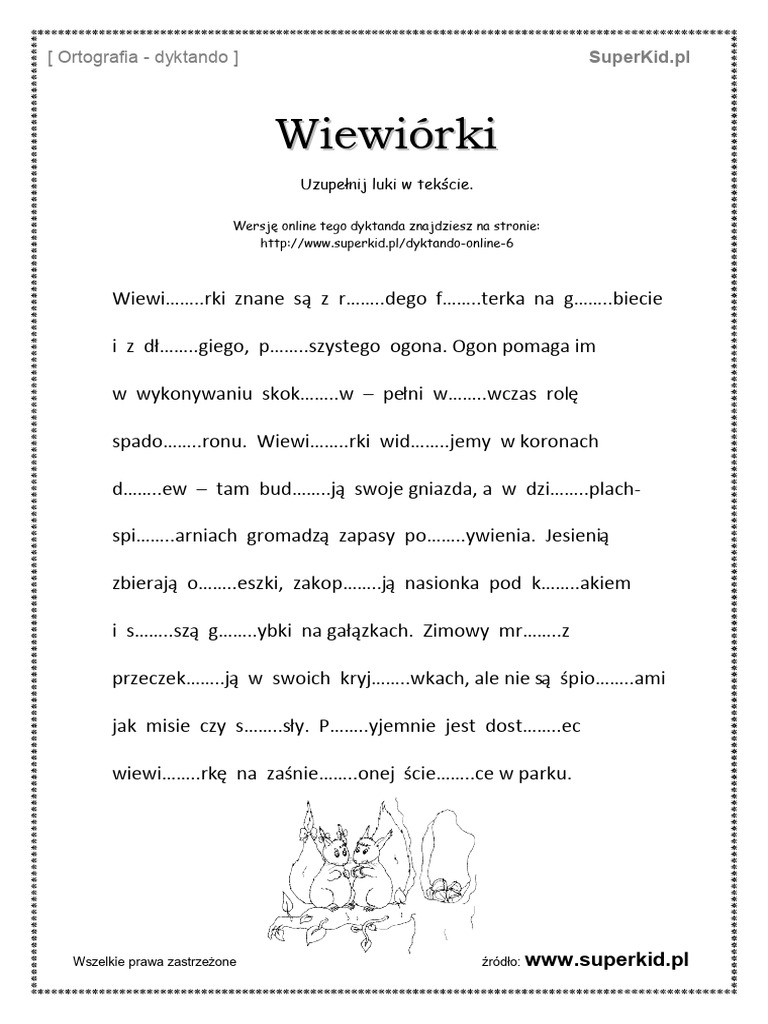 [ Ortografia - dyktando ] SuperKid.pl
Wiewiórki
Uzupełnij luki w tekście.
Wersję online tego dyktanda znajdziesz na stronie:
http://www.superkid.pl/dyktando-online-6
Wiewi........rki znane są z r........dego f........terka na g........biecie
i z dł........giego, p........szystego ogona. Ogon pomaga im
w wykonywaniu skok........w – pełni w........wczas rolę
spado........ronu. Wiewi........rki wid........jemy w koronach
d........ew – tam bud........ją swoje gniazda, a w dzi........plach-
spi........arniach gromadzą zapasy po........ywienia. Jesienią
zbierają o........eszki, zakop........ją nasionka pod k........akiem
i s........szą g........ybki na gałązkach. Zimowy mr........z
przeczek........ją w swoich kryj........wkach, ale nie są śpio........ami
jak misie czy s........sły. P........yjemnie jest dost........ec
wiewi........rkę na zaśnie........onej ście........ce w parku.
Wszelkie prawa zastrzeżone źródło: www.superkid.pl